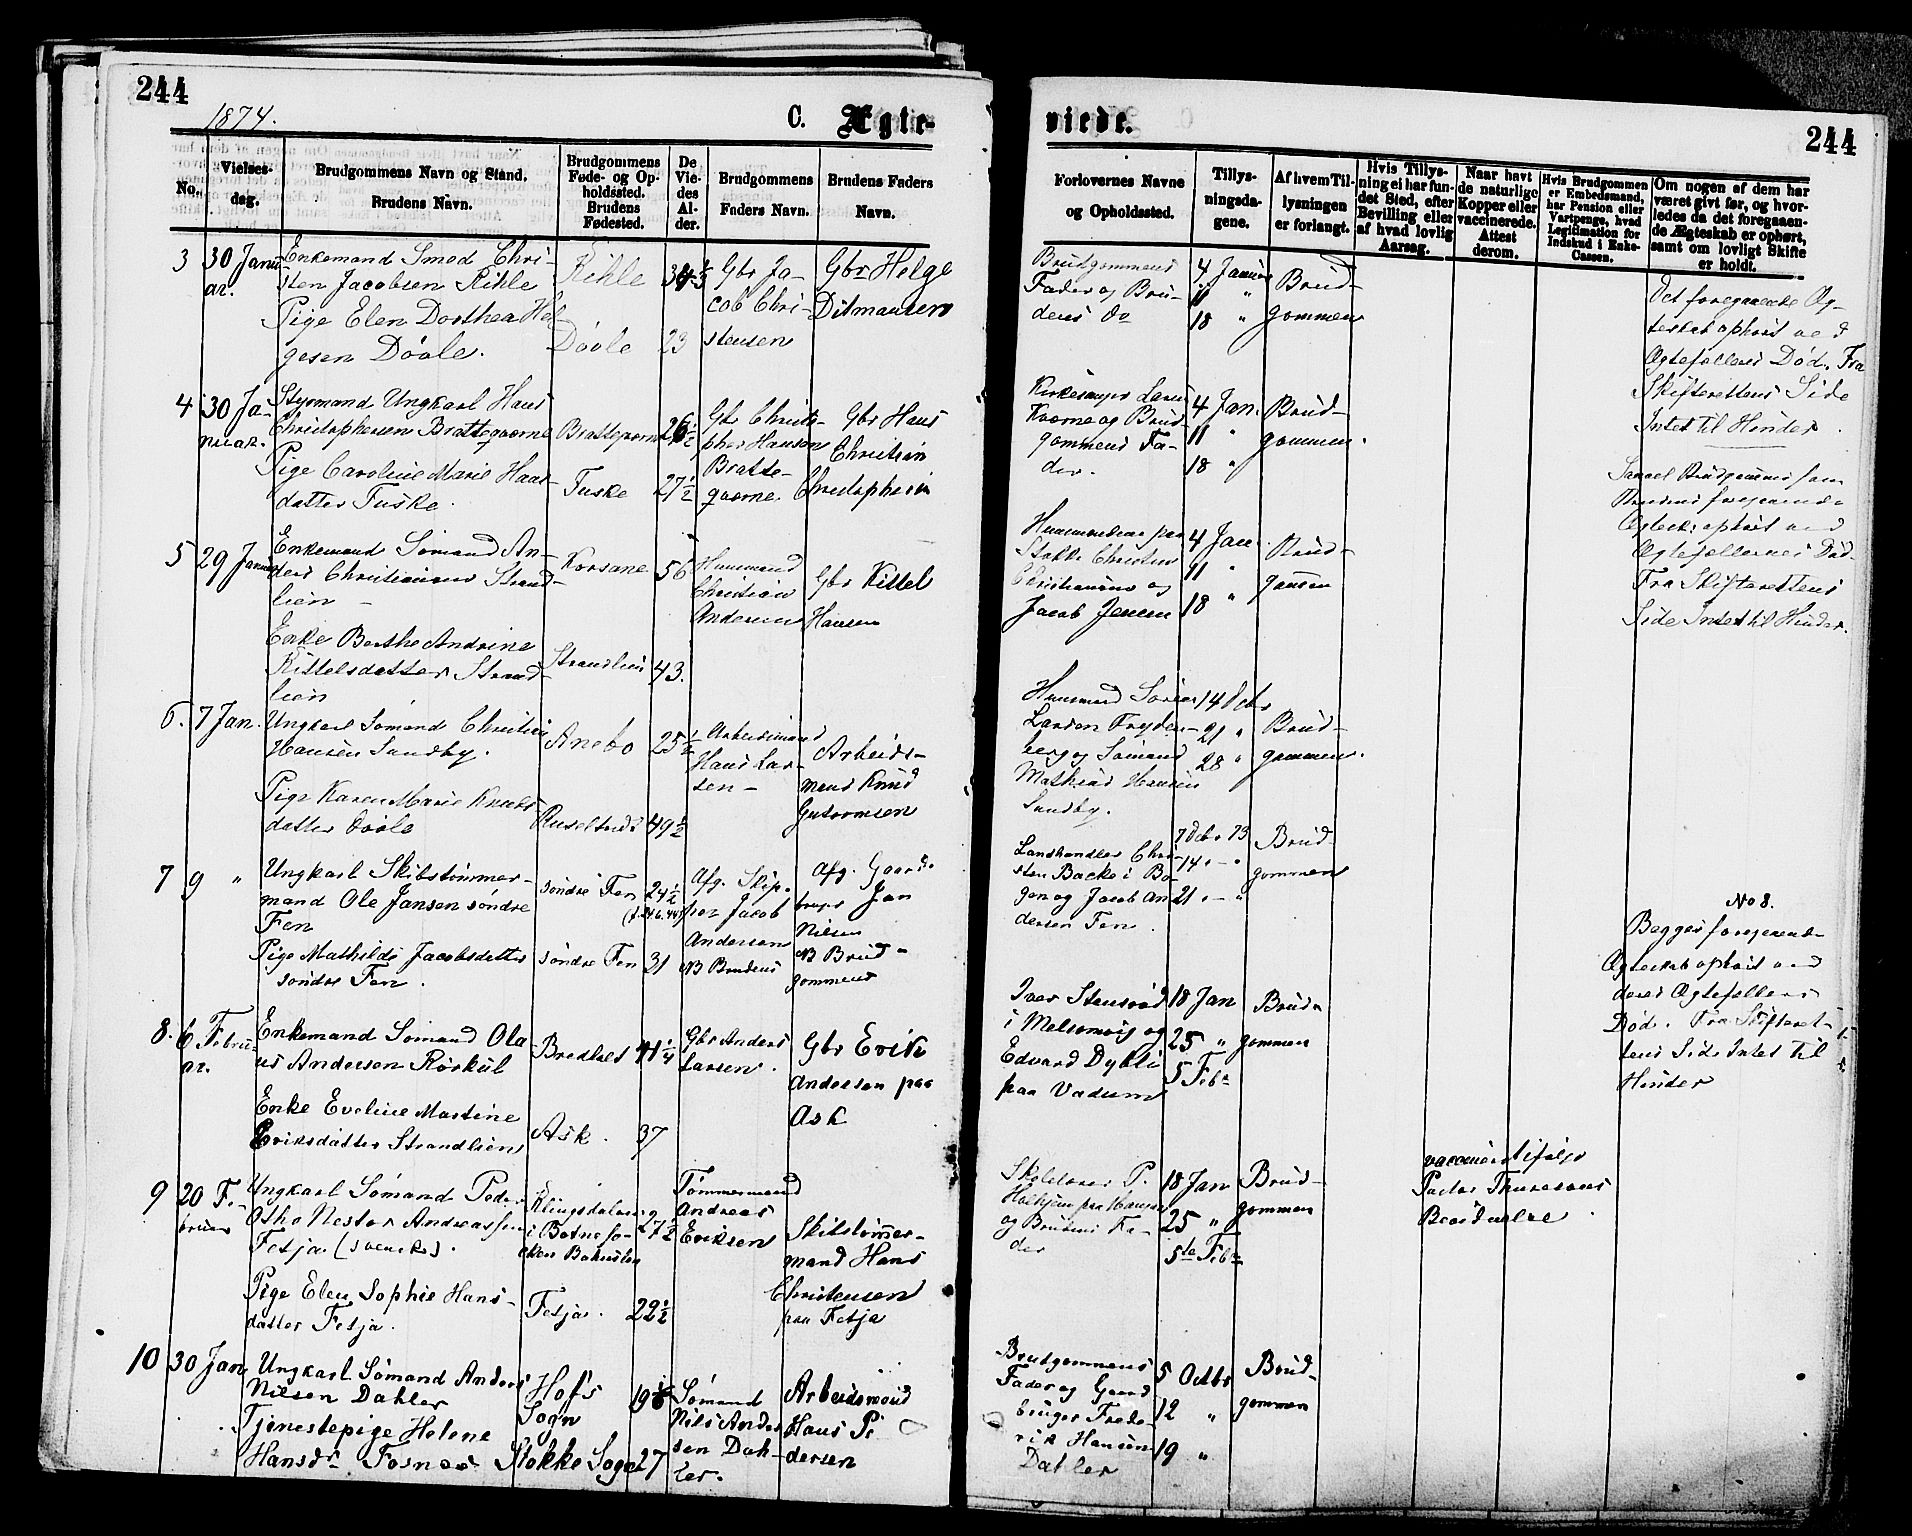 244
1874.
C. Ægte-
No.
Vielses-
dag.
Brudgommens Navn og Stand.
Brudens Navn.
Brudgommens
Føde- og Op-
holdssted.
Brudens
Fødested.
De
Vie-
des
Al-
der.
Brudgommens
Faders Navn.
Brudens Faders
Navn.
3
30 Janu
ar.
Enkemand Smed Chri-
sten Jacobsen Rihle
Pige Elen Dorthea Hel-
gesen Døvle.
Rihle
Døvle
23
Gbr Ja-
cob Chri-
stensen
Gbr Helge
Ditmansen
4
30 Ja-
nuar.
Styrmand Ungkarl Hans
Christophersen Brattegaorne
Pige Caroline Marie Hans
datter Fuske.
Fuske
26½
27½
Gbr Christo-
pher Hansen
Bratte-
gaorne.
Gbr Hans
Christian
Christophersen
5
29 Januar
Enkemand Sømand An-
ders Christiansen Strand-
lien
Enke Berthe Andrine
Kittelsdatter Strand-
lien
Korsane
Strandlien
56
43.
Huusmand
Christian
Andersen
Gbr Kittel
Hansen
6.
7 Jan.
Ungkarl Sømand Christian
Hansen Sundby.
Pige Karen Marie Knuds
datter Døvle
Anebo
25½
49½
Arbeidsmand
Hans Lar-
sen -
Arbeids-
mand Knud
Guttormsen
7
9 "
Ungkarl Skibstømmer-
mand Ole Jansen søndre
Fen
Pige Mathilde Jacobsdatter
søndre Fen.
søndre Fen
søndre Fen
24½
31
Afg. Skip-
per Jacob
Andersen
NB Brudens
Afg. Gaard-
bruger Jan
Nilsen
NB Brud-
gommens
8.
6 Febru-
ar.
Enkemand Sømand Ola-
us Andersen Rørkul
Enke Eveline Martine
Eriksdatter Strandlien
Bredhed
Ask.
41¼
37
Gbr Anders
Larsen.
Gbr Erik
Andersen paa
Ask
9
20 Fe-
bruar
Ungkarl Sømand Peder
Otho Nestor Andreassen
Fetja (svensk).
Pige Elen Sophie Hans-
datter Fetja.
Klingsdalen
i Botne so-
Fetja.
27½
22½
Tømmermand
Andreas
Eriksen
Skibstømer-
mand Hans
Christensen
paa Fetja
10
30 Jan
Ungkarl Sømand Anders
Nilsen Dahler
Tjenestepige Helene
Hansdr Fosnes
Hofs
Sogn
Stokke Sogn
27
Sømand
Nils Ander
sen Dah-
ler.
Arbeidsmand
Hans Pe
dersen
viede.
244
Forlovernes Navne
og Opholdssted.
Tillys-
ningsda-
gene.
Af hvem Til-
lysningen
er forlangt.
Hvis Tillys-
ning ei har fun-
det Sted, efter
Bevilling eller
af hvad lovlig
Aarsag.
Naar havt
de naturlige
Kopper eller
vaccinerede.
Attest
derom.
Hvis Brudgommen
er Embedsmand,
har Pension eller
Vartpenge, hvad
Legitimation for
Indskud i Enke-
Cassen.
Om nogen af dem har
været givt før, og hvor-
ledes da det foregaaen-
de Ægteskab er ophørt,
samt om lovligt Skifte
er holdt.
Brudgommens
Fader og Bru-
dens do
4 Januar
11 "
18 "
Brud-
gommen
Det foregaaende Æg-
teskab ophørt ved
Ægtefællens Død. Fra
Skifterettens Side
Intet til Hinder.
Kirkesanger Larsen
Kvorne og Brud-
gommens Fa-
der.
4 Jan.
11 "
18 "
Brud-
gommen.
Huusmændene paa
Stokke Christen
Christiansen og
Jacob Jensen
4 Jan.
11 "
18 "
Brud-
gommen
Ægtefællernes Død
Fra Skifterettens
Side Intet til Hinder.
Huusmand Søren
Larsen Fryden-
berg og Sømand
Mathias Hansen
Sundby.
14 Decbr
21 "
28 "
Brud-
gommen.
Landhandler Chri-
sten Backe i Bo-
gen og Jacob An-
dersen Fen.
7 Decbr 73
14 " - "
21 " - "
Brud-
gommen
Iver Stensrød
i Melsomvig og
Edvard Dybli
paa Vadum
18 Jan
25 "
5 Febr
Brud-
gommen
No 8.
Begges foregaaend-
Ægteskab ophørt ved
deres Ægtefællers
Død. Fra Skifteret-
tens Side Intet til
Hinder
Skolelærer P.
og Brudens Fa-
der
18 Jan
25 "
5te Febr
Brud-
gommen
vaccineret ifølge
Pastor Thuresens
Bevidnelse.
Brudgommens
Fader og Gaard
bruger Frede-
rik Hansen
Dahler
5 Octbr
12 "
19 "
Brud-
gommen